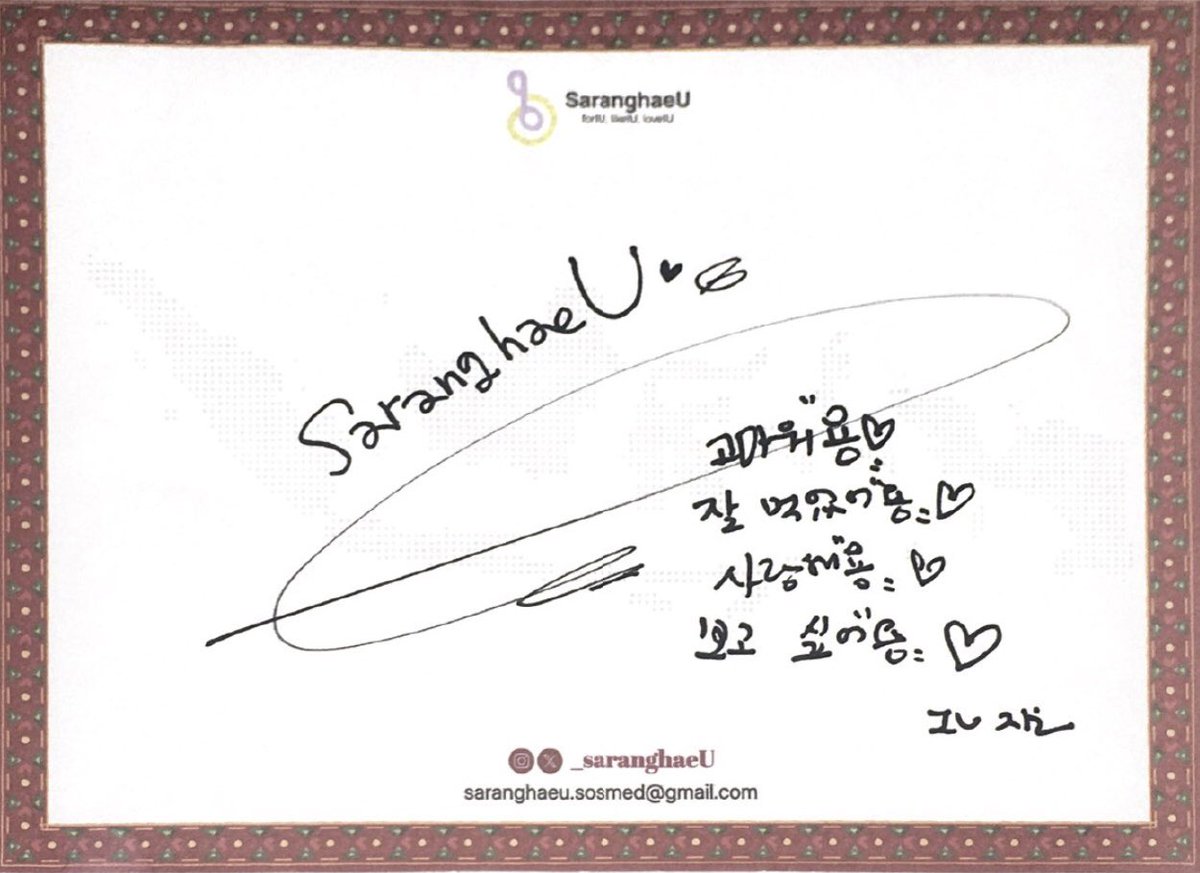 SaranghaeU
forIU, likeIU, loveIU
SaranghaeU♥
고마워용♡
잘 먹었어용♡
사랑해용♡
보고 싶어용♡
지은
_saranghaeU
saranghaeu.sosmed@gmail.com